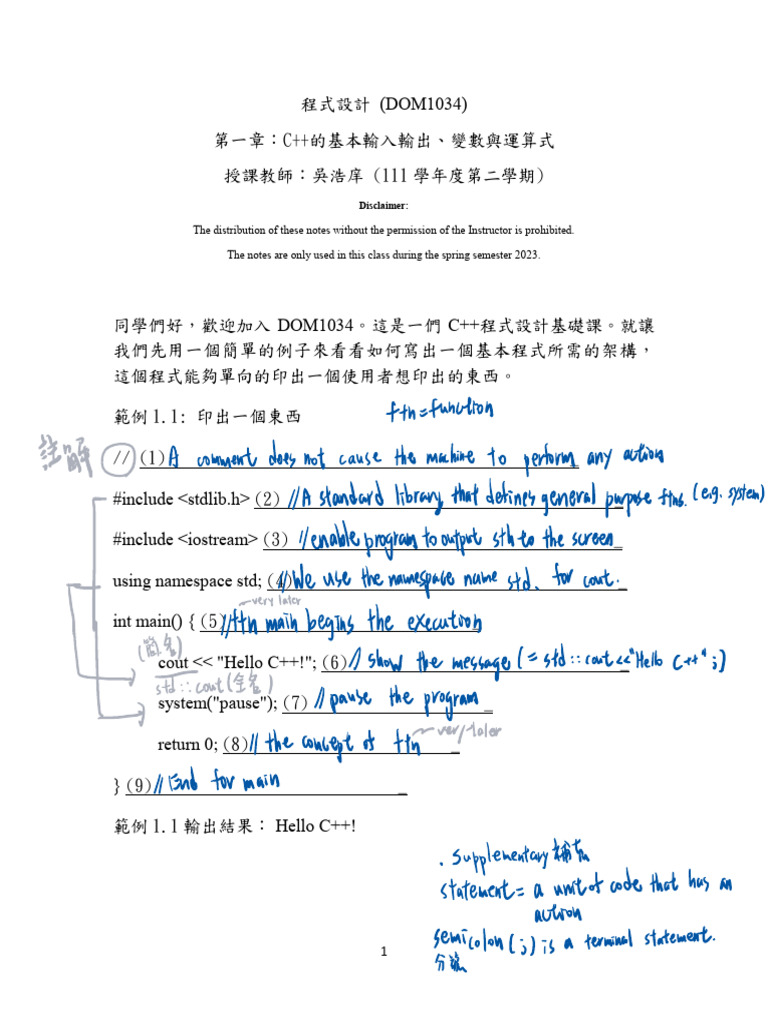 程式設計 (DOM1034)
第一章：C++的基本輸入輸出、變數與運算式
授課教師：吳浩庠（111 學年度第二學期）
Disclaimer:
The distribution of these notes without the permission of the Instructor is prohibited.
The notes are only used in this class during the spring semester 2023.
同學們好，歡迎加入 DOM1034。這是一們 C++程式設計基礎課。就讓
我們先用一個簡單的例子來看看如何寫出一個基本程式所需的架構，
這個程式能夠單向的印出一個使用者想印出的東西。
範例 1.1: 印出一個東西
ftn=function
註解 // (1) A comment does not cause the machine to perform any action
#include <stdlib.h> (2) //A standard library that defines general purpose ftns. (e.g. system)
#include <iostream> (3) //enable program to output sth to the screen
using namespace std; (4)//We use the namespace name std. for cout.
very later
int main() { (5)//ftn main begins the execution
(簡名)
cout << "Hello C++!"; (6)// show the message (= std::cout<<"Hello C++";)
std::cout(全名)
system("pause"); (7) //pause the program
return 0; (8)// the concept of ftn very later
} (9)//End for main
範例 1.1 輸出結果： Hello C++!
. Supplementary 補充
statement= a unit of code that has an
action
semicolon(;) is a terminal statement.
分號
1